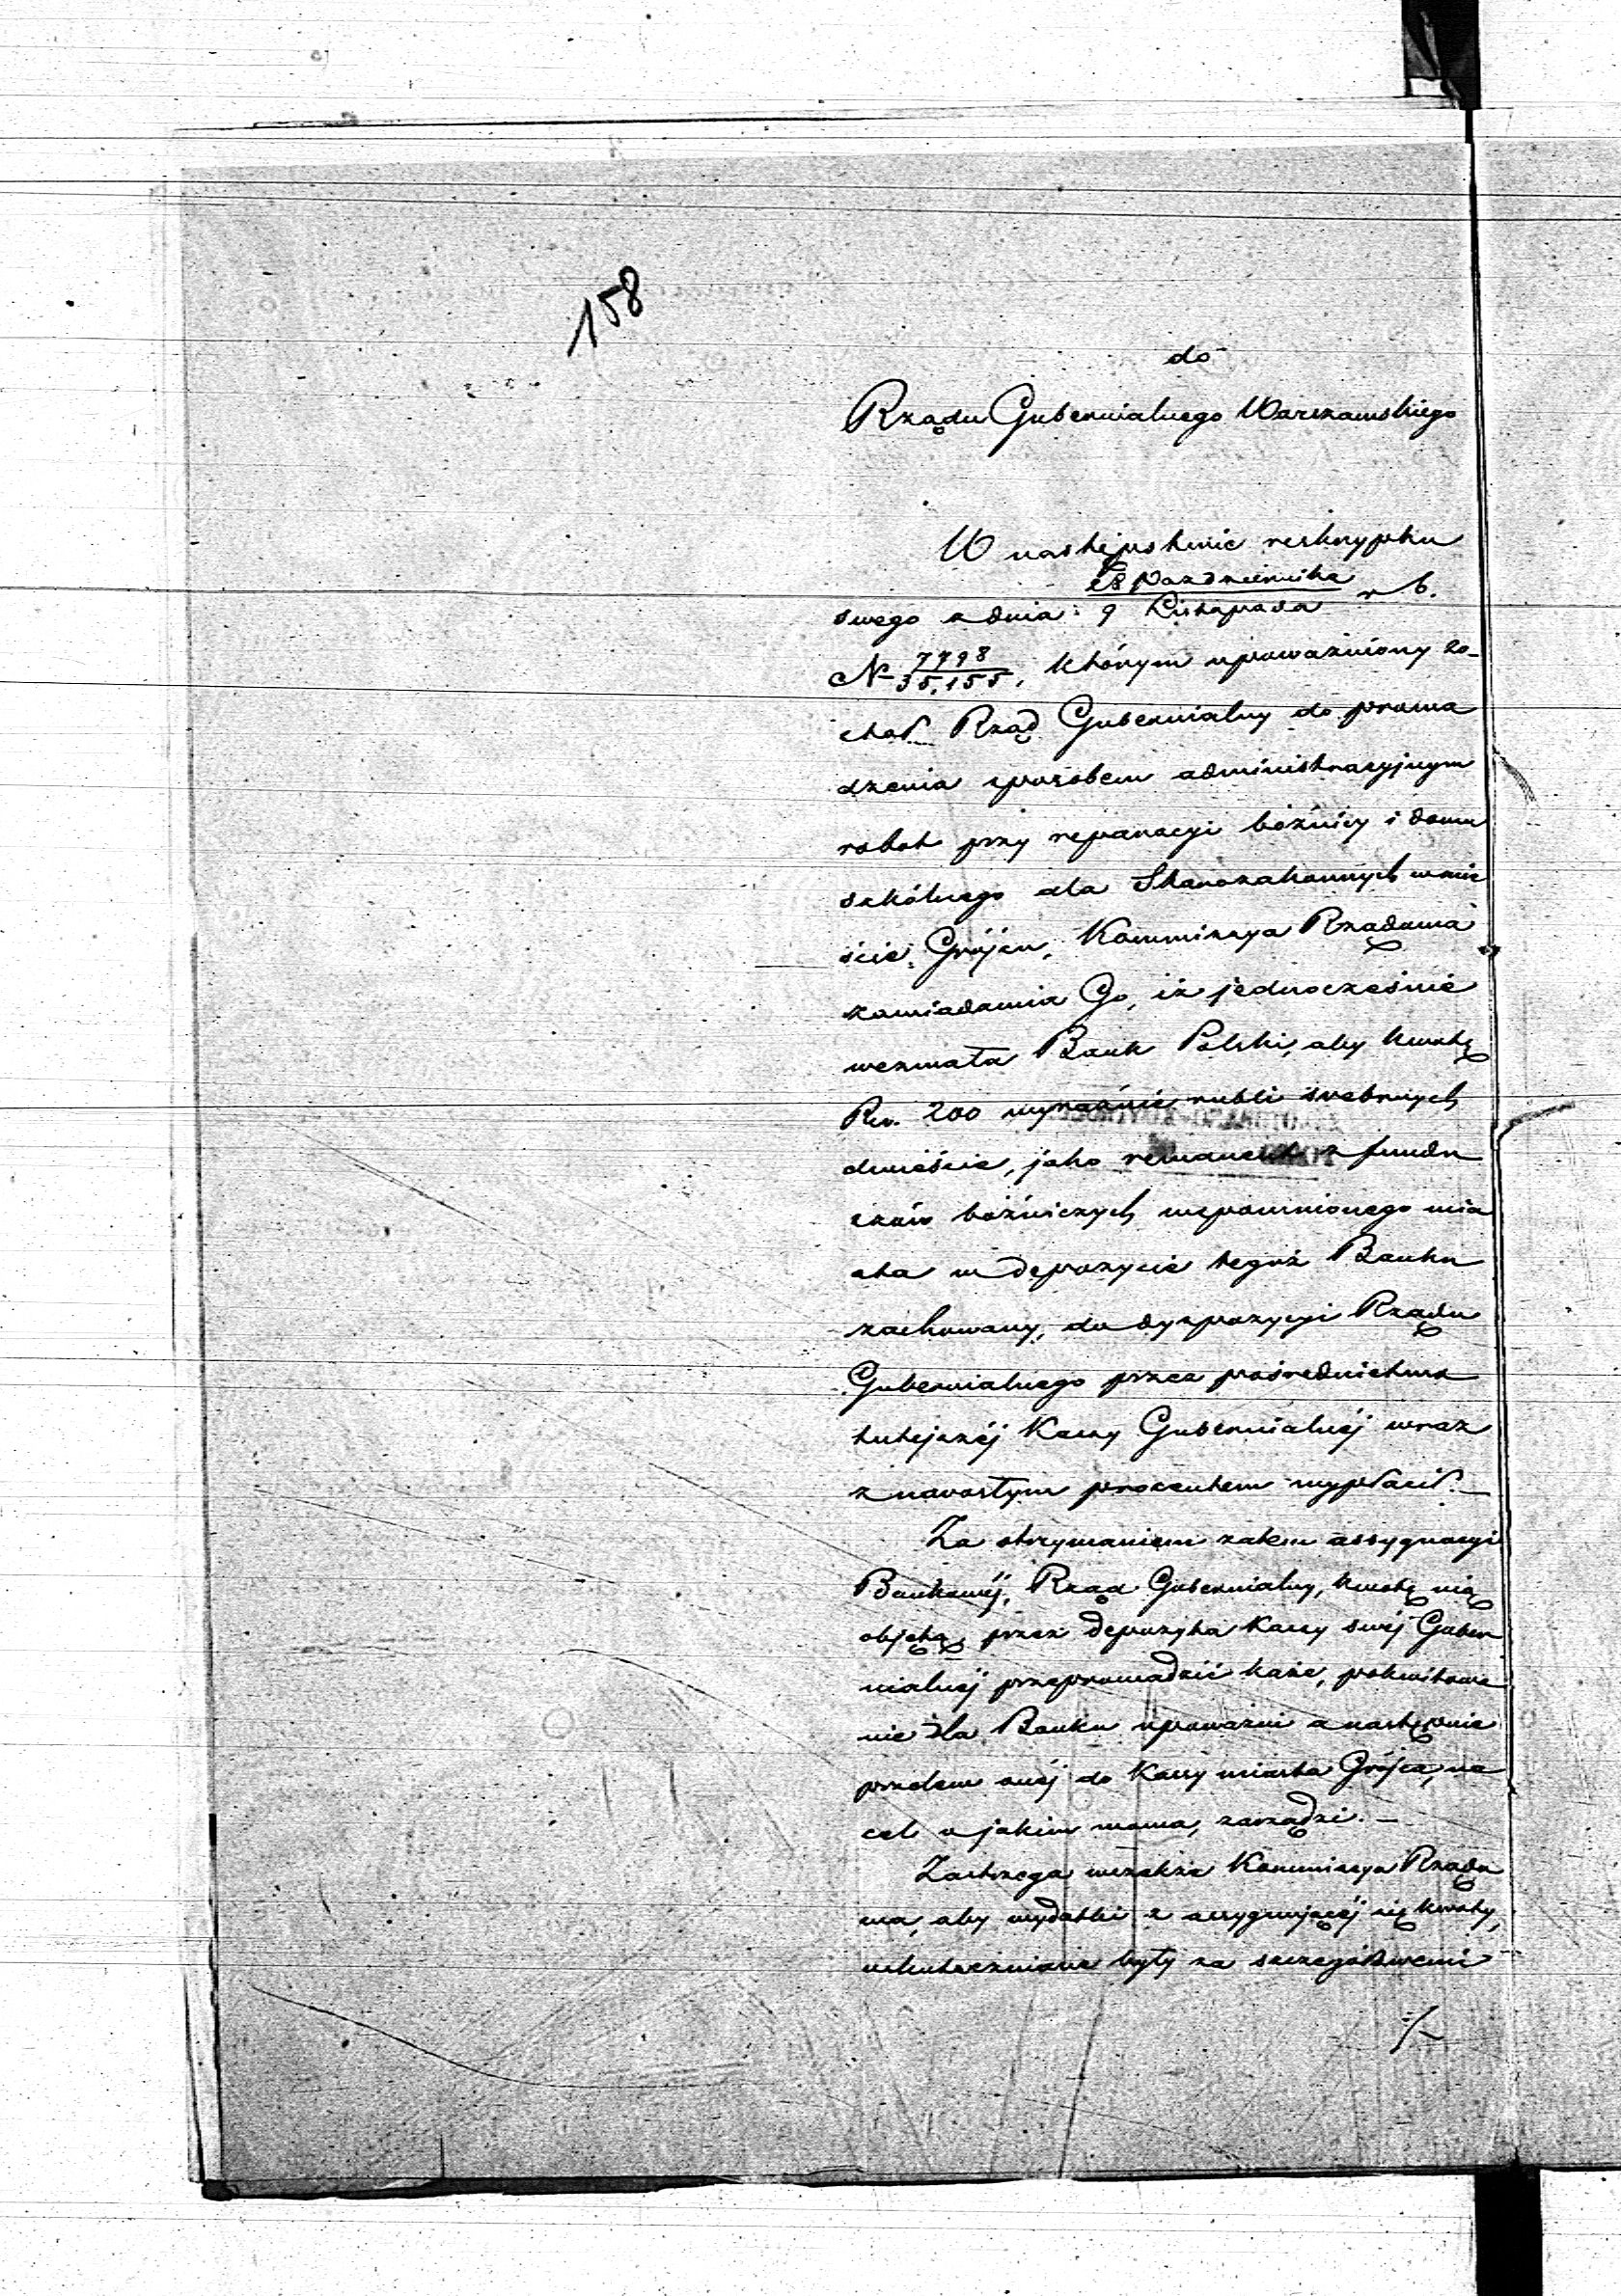 158
do
Rządu Gubernialnego Warszawskiego
W następstwie reskryptu
swego z dnia 28 Października / 9 Listopada r. b.
N 7798/35,155, którym upoważniony zo-
stał Rząd Gubernialny do prowa
dzenia sposobem administracyjnym
robot przy reparacyi bóżnicy i domu
szkólnego dla Starozakonnych w mie
ście Grójcu, Kommissya Rządowa
zawiadamia Go, iż jednocześnie
wezwała Bank Polski, aby kwotę
Rsr. 200 wyraźnie rubli srebrnych
dwieście, jako remanent z fundu
szów bóżniczych wspomnionego mia
sta w depozycie tegoż Banku
zachowany, do dyspozycyi Rządu
Gubernialnego przez pośrednictwo
tutejszéj Kassy Gubernialnéj wraz
z narosłym procentem wypłacił.—
Za otrzymaniem zatem assygnacyi
Bankowéj, Rząd Gubernialny, kwotę nią
objętą, przez depozyta Kassy swéj Guber
nialnéj przeprowadzić każe, pokwitowa
nie dla Banku upoważni a następnie
przelew onéj do Kassy miasta Grójca, na
cel o jakim mowa, zarządzi.—
Zastrzega wszakże Kommissya Rządo
wa, aby wydatki z assygnującéj się kwoty,
uskuteczniane były za szczegółowemi
./.